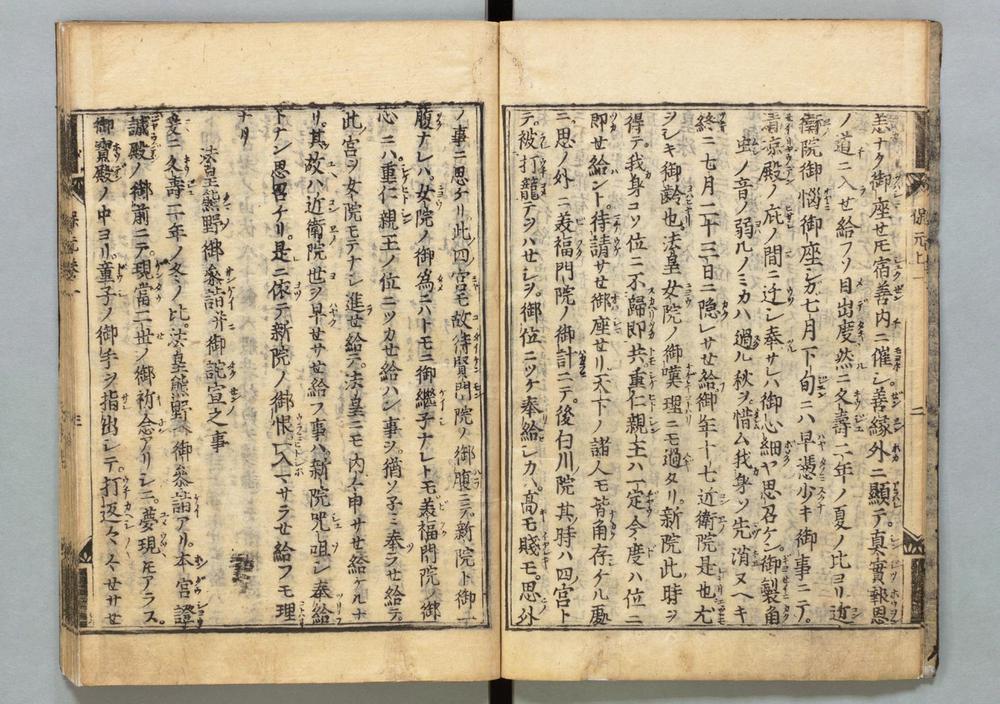 恙ナク御座セモ宿善内ニ催シ善縁外ニ顯テ真實報恩
ノ道ニ入セ給フソ目出度然ニ久壽二年ノ夏ノ比ヨリ近
衛院御悩御座シカ七月下旬ニハ早憑少キ御事ニテ
清凉殿ノ庇ノ間ニ迁シ奉サレハ御心細ヤ思召ケン御製角
虫ノ音ノ弱ルノミカハ過ル秋ヲ惜ム我身ソ先消ヌヘキ
終ニ七月二十三日ニ隠レサセ給御年十七近衛院是也尤
ヲシキ御齡也法皇女院ノ御嘆理ニモ過タリ新院此時ヲ
得テ我身コソ位ニ不歸即共重仁親王ハ一定今度ハ位ニ
即セ給ント待請サセ御座セリ天下ノ諸人モ皆角存ケル處
ニ思ノ外ニ美福門院ノ御計ニテ後白川院其時ハ四宮ト
テ被打籠テヲハセシヲ御位ニツケ奉給シカハ高モ賤モ思外
ノ事ニ思ケリ此四宮モ故待賢門院ノ御腹ニテ新院ト御一
腹ナレハ女院ノ御為ニハトモニ御繼子ナレトモ美福門院ノ御
心ニハ重仁親王ノ位ニツカセ給ハン事ヲ猶ソ子ミ奉ラセ給テ
此宮ヲ女院モテナシ進セ給テ法皇ニモ内々申サセ給ケルナ
リ其故ハ近衛院世ヲ早セサセ給フ事ハ新院呪咀シ奉給
トナン思召ケリ是ニ依テ新院ノ御恨一入マサラセ給フモ理
ナリ
法皇熊野御參詣并御詫宣之事
爰ニ久壽二年ノ冬ノ比法皇熊野ヘ御參詣アリ本宮證
誠殿ノ御前ニテ現當二世ノ御祈念アリシニ夢現トモアラス
御寶殿ノ中ヨリ童子ノ御手ヲ指出シテ打返々々セサセ